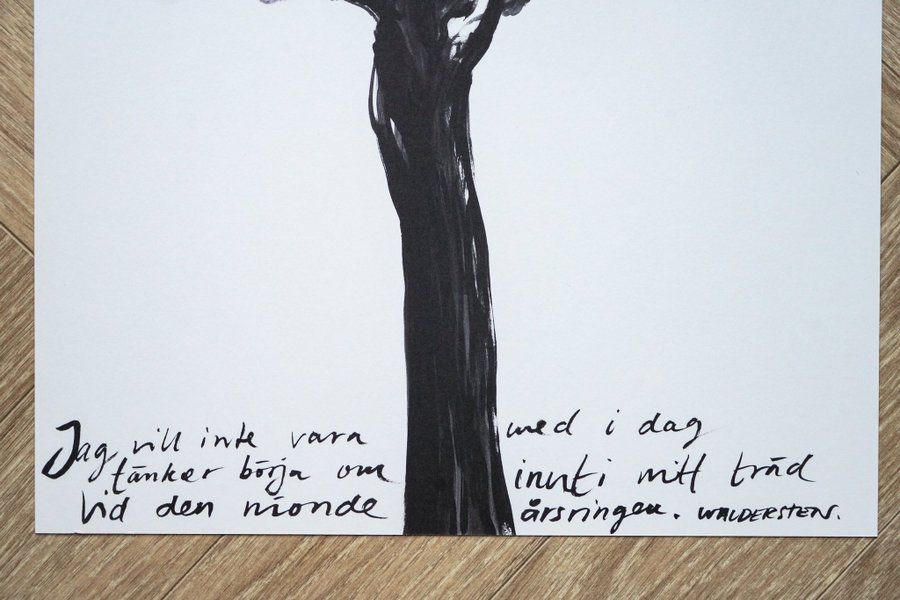 Jag vill inte vara med i dag
tänker börja om inuti mitt träd
Vid den nionde årsringen. WALDERSTENS.